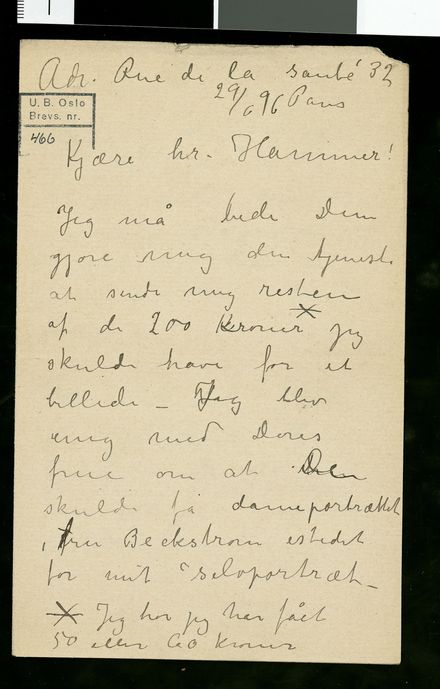 Adr. Rue de la santé 32
29/6 96 Paris
U. B. Oslo
Brevs. nr.
466
Kjære hr. Hammer!
Jeg må bede Dem
gjøre mig den tjeneste
at sende mig resten
af de 200 Kroner × jeg
skulde have for et
billede – Jeg blev
enig med Deres
frue om at De
skulde få dameportrættet
fru Beckstrøm istedet
for mit "selvportræt –
× Jeg tror jeg har fået
50 eller 60 Kroner